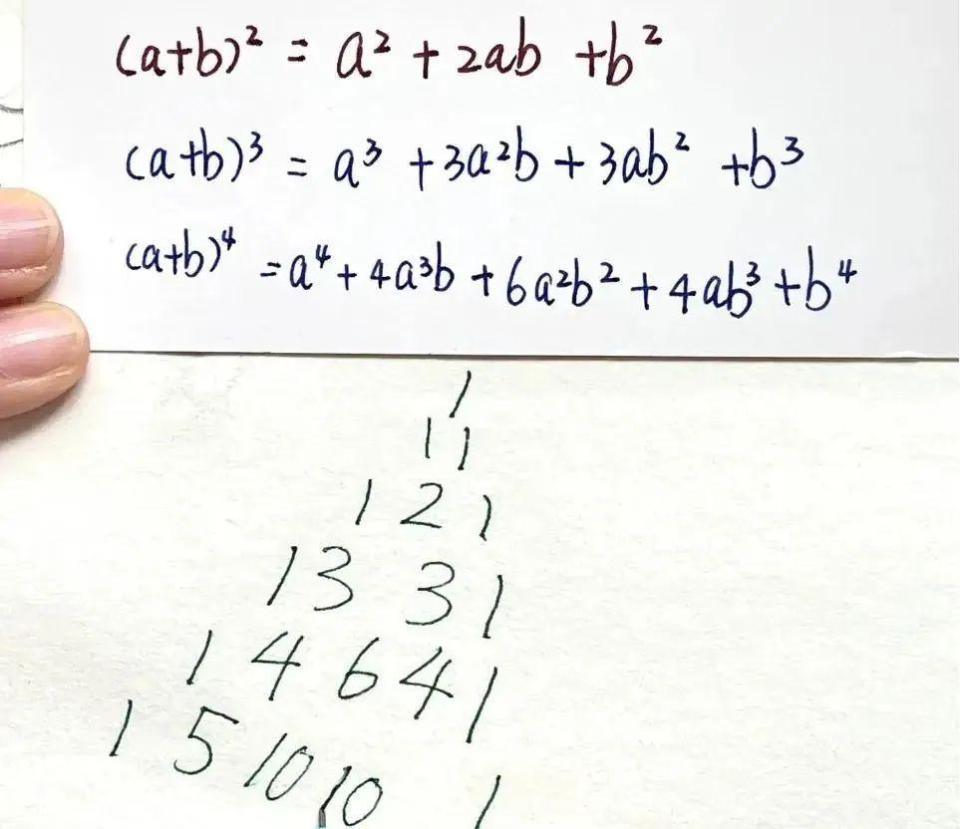 (a+b)² = a² + 2ab + b²
(a+b)³ = a³ + 3a²b + 3ab² + b³
(a+b)⁴ = a⁴ + 4a³b + 6a²b² + 4ab³ + b⁴
1
1 1
1 2 1
1 3 3 1
1 4 6 4 1
1 5 10 10 1